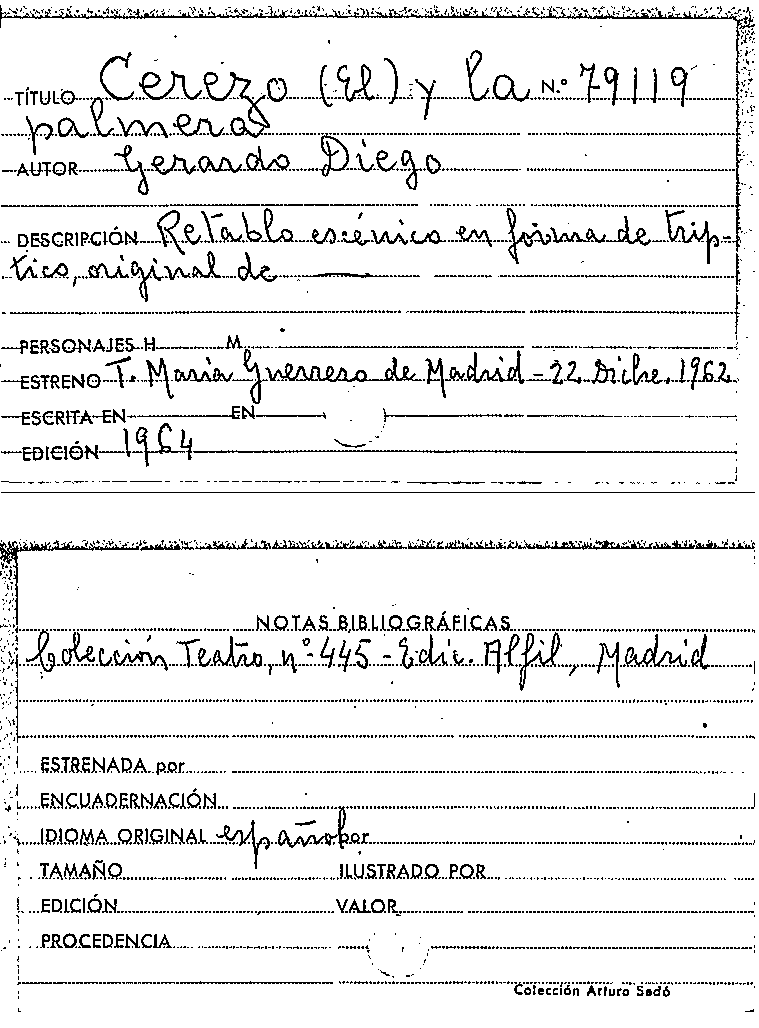 TÍTULO Cerezo (El) y la N.º 79119
palmera
AUTOR Gerardo Diego
DESCRIPCIÓN Retablo escénico en forma de trip-
tico, original de ——
PERSONAJES H M
ESTRENO T. María Guerrero de Madrid - 22 Dicbre. 1962
ESCRITA EN EN
EDICIÓN 1964
NOTAS BIBLIOGRÁFICAS
Colección Teatro, nº 445 - Edic. Alfil, Madrid
ESTRENADA por
ENCUADERNACIÓN
IDIOMA ORIGINAL español por
TAMAÑO ILUSTRADO POR
EDICIÓN VALOR
PROCEDENCIA
Colección Arturo Sedó